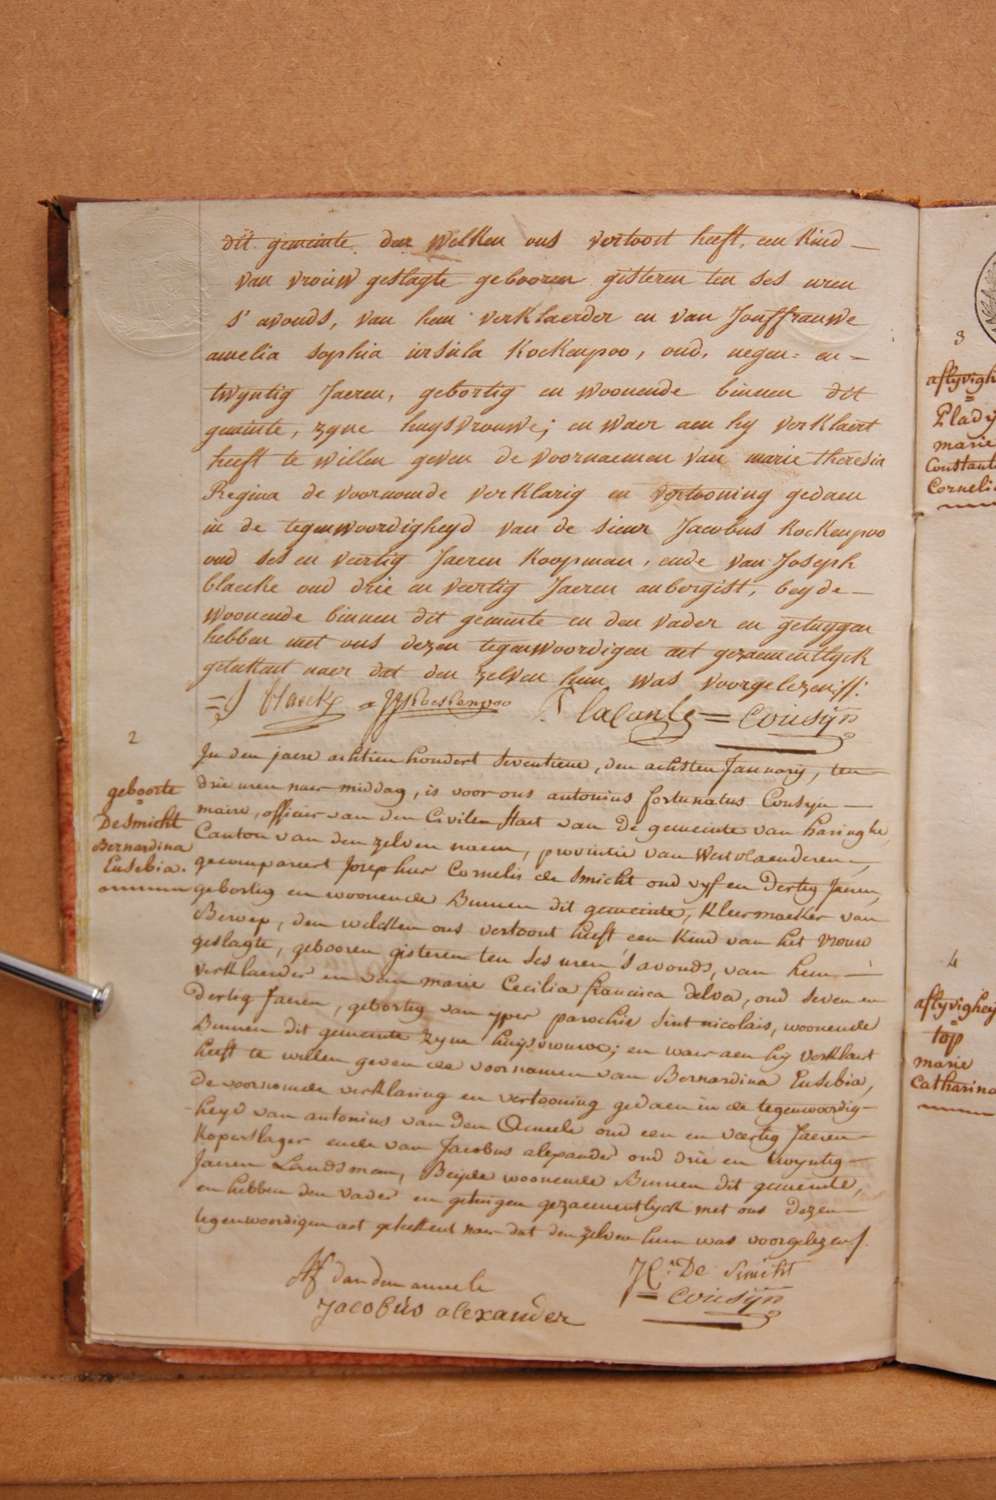 dit gemeinte den welken ons vertoont heeft, een kind —
van vrouw geslagte gebooren gisteren ten ses uren
s' avonds, van hem verklaerder en van Jonffrauwe
amelia sophia ursula Kockenpoo, oud, negen= en —
twyntig Jaeren, gebortig en woonende binnen dit
gemeinte, zyne huysvrouwe; en waer aen hy verklaert
heeft te willen geven de voornaemen van marie theresia
Regina de voornomde verklarig en vertooning gedaen
in de tegenwoordigheyd van de sieur Jacobus Kockenpoo
oud ses en veertig Jaeren Koopman, ende van Joseph
blaeke oud drie en veertig Jaeren aubergist, beyde —
woonende binnen dit gemeinte en den vader en getuygen
hebben met ons dezen tegenwoordigen act gezaementlyck
geteekent naer dat den zelven hun was voorgelezen //.
= J Blaeke = JJ Kockenpoo P laConte = Cousyn
2
In den jaere achtien hondert seventiene, den achsten January, ten
drie uren naer middag, is voor ons antonius fortunatus Cousyn —
maire, officier van den Civilen staet van de gemeinte van haringhe,
Canton van den zelven naem, provintie van Westvlaenderen —,
gecompareert Josephus Cornelis de Smicht oud vyf en Dertig Jaeren,
gebortig en woonende Binnen dit gemeinte, Kleermaeker van
Beroep, den welcken ons vertoont heeft een Kind van het vrouw
geslagte, gebooren gisteren ten ses uren 's avonds, van hem —
verklaerder en van marie Cecilia francisca Delva, oud seven en
Dertig Jaeren, gebortig van yper parochie Sint nicolais, woonende
Binnen dit gemeinte zyne huysvrouwe; en waer aen hy verklaert
heeft te willen geven de voornamen van Bernardina Eusebia,
de voornomde verklaring en vertooning gedaen in de tegenwoordig—
heyd van antonius van den Ameele oud een en veertig Jaeren —
Koperslager ende van Jacobus alexander oud drie en twyntig —
Jaeren Landsman, Beyde woonende Binnen dit gemeinte,
en hebben den vader en getuigen gezaementlyck met ons Dezen —
tegenwoordigen act geteekent naer dat den zelven hun was voorgelezen /.
geboorte
=
De Smicht
Bernardina
Eusebia.
Af vanden ameele
JC De Smicht
Jacobus alexander
= Cousyn
3
aflyvigh
=
Plady
marie
Constant
Corneli
4
aflyvighey
=
top
marie
Catharina